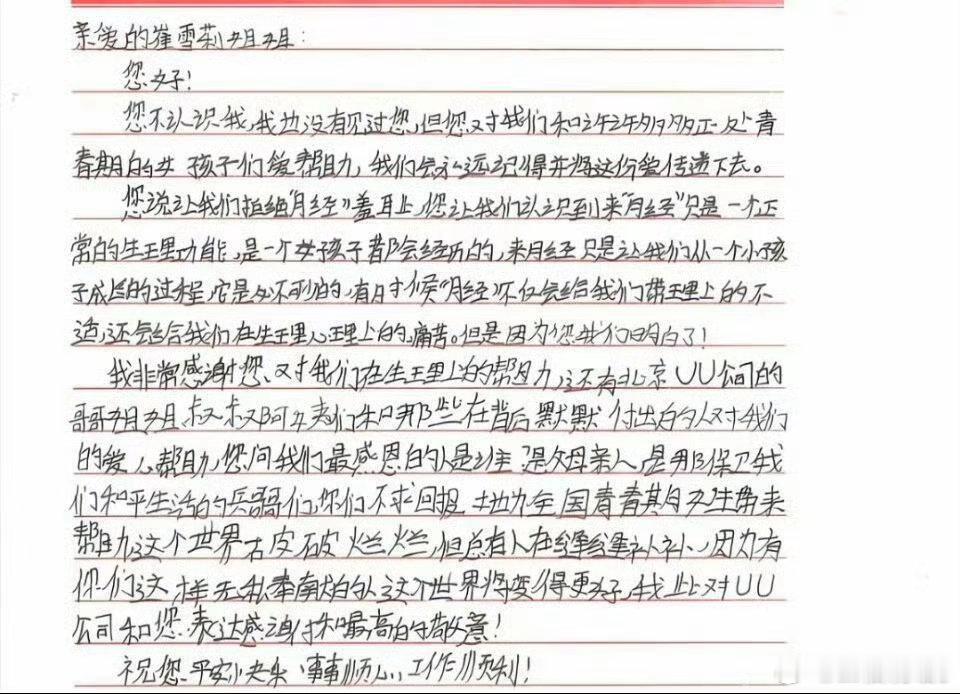 亲爱的崔雪莉姐姐：
您好！
您不认识我，我也没有见过您，但您对我们和许许多多正处青
春期的女孩子们爱帮助，我们会永远记得并将这份爱传递下去。
您说让我们拒绝“月经”羞耻，您让我们认识到来“月经”只是一个正
常的生理功能，是一个女孩子都会经历的，来月经只是让我们从一个小孩
子成长的过程，它是必不可少的，有时候“月经”不仅会给我们带理上的不
适，还会给我们在生理心理上的痛苦。但是因为您我们明白了！
我非常感谢您对我们在生理上的帮助，还有北京UU公司的
哥哥姐姐叔叔阿姨们和那些在背后默默付出的人对我们
的爱心帮助，您问我们最感恩的人是谁？是父母亲人，是那保卫我
们和平生活的兵哥哥们，你们不求回报地为全国青春期女生带来
帮助，这个世界破破烂烂，但总有人在缝缝补补，因为有
你们这样无私奉献的人这个世界将变得更好，我此对UU
公司和您表达感谢和最高的敬意！
祝您平安快乐事事顺心，工作顺利！